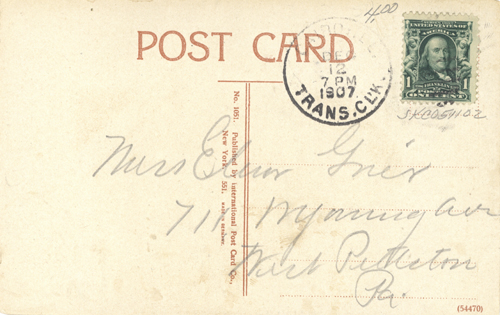 4.00
POST CARD
DEC
12
7 PM
1907
TRANS. CL'K
UNITED STATES OF AMERICA
1
ONE CENT
SKC051102
No. 1051. Published by International Post Card Co.,
New York. 551.
Miss Grier
711 Wyoming Ave
West Pittston
Pa.
(54470)